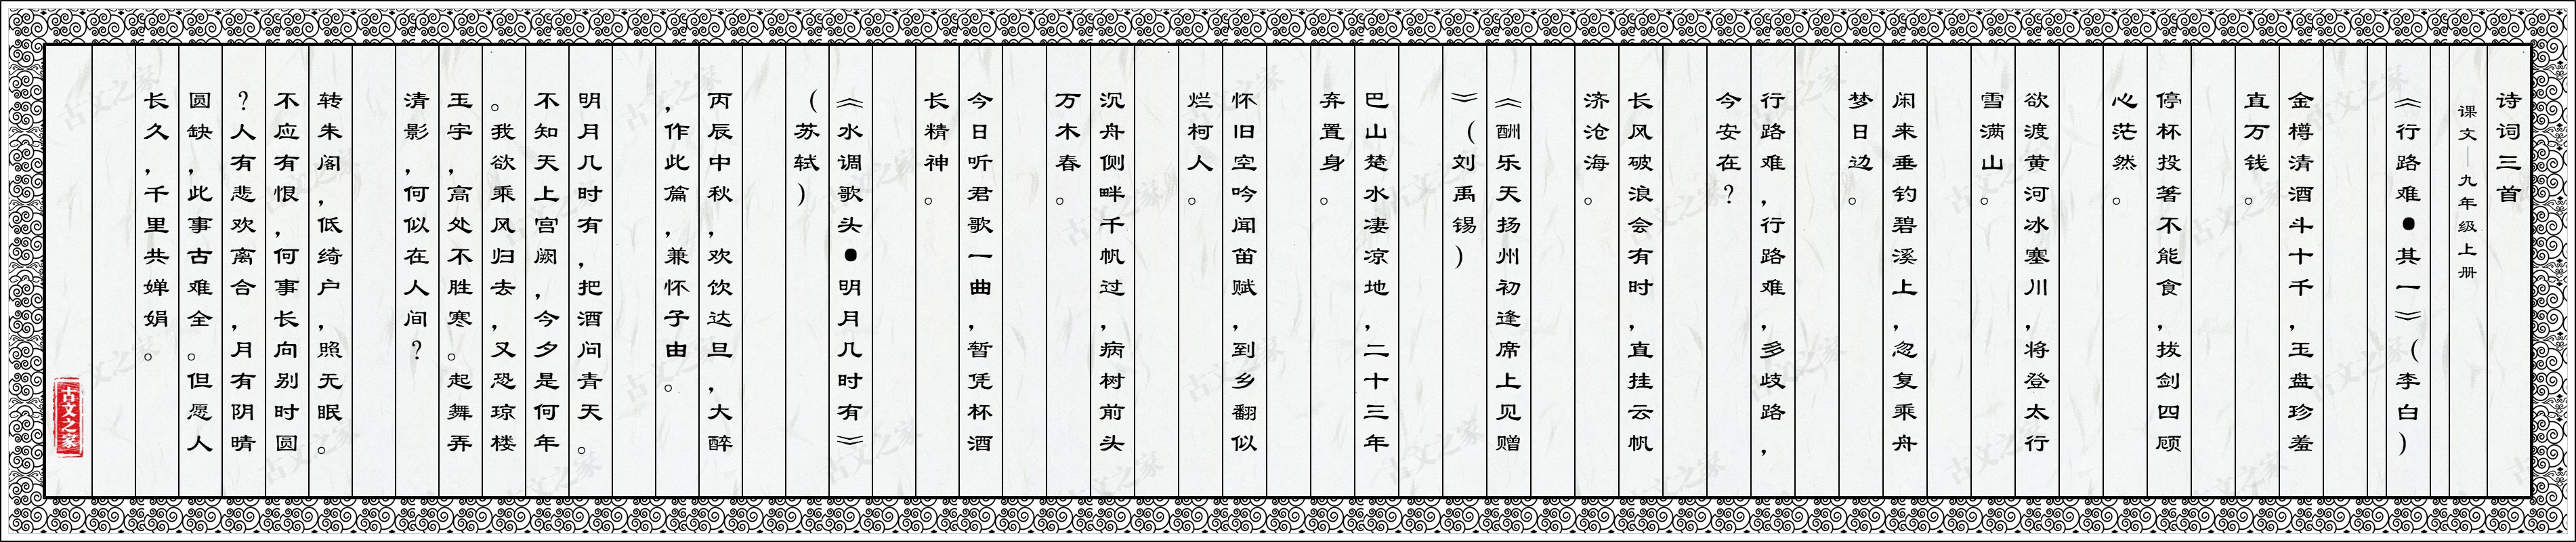 诗词三首
课文—九年级上册
《行路难●其一》（李白）
金樽清酒斗十千，玉盘珍羞
直万钱。
停杯投著不能食，拔剑四顾
心茫然。
欲渡黄河冰塞川，将登太行
雪满山。
闲来垂钓碧溪上，忽复乘舟
梦日边。
行路难，行路难，多歧路，
今安在？
长风破浪会有时，直挂云帆
济沧海。
《酬乐天扬州初逢席上见赠
》（刘禹锡）
巴山楚水凄凉地，二十三年
弃置身。
怀旧空吟闻笛赋，到乡翻似
烂柯人。
沉舟侧畔千帆过，病树前头
万木春。
今日听君歌一曲，暂凭杯酒
长精神。
《水调歌头●明月几时有》
（苏轼）
丙辰中秋，欢饮达旦，大醉
，作此篇，兼怀子由。
明月几时有，把酒问青天。
不知天上宫阙，今夕是何年
。我欲乘风归去，又恐琼楼
玉宇，高处不胜寒。起舞弄
清影，何似在人间？
转朱阁，低绮户，照无眠。
不应有恨，何事长向别时圆
？人有悲欢离合，月有阴晴
圆缺，此事古难全。但愿人
长久，千里共婵娟。
古文之家